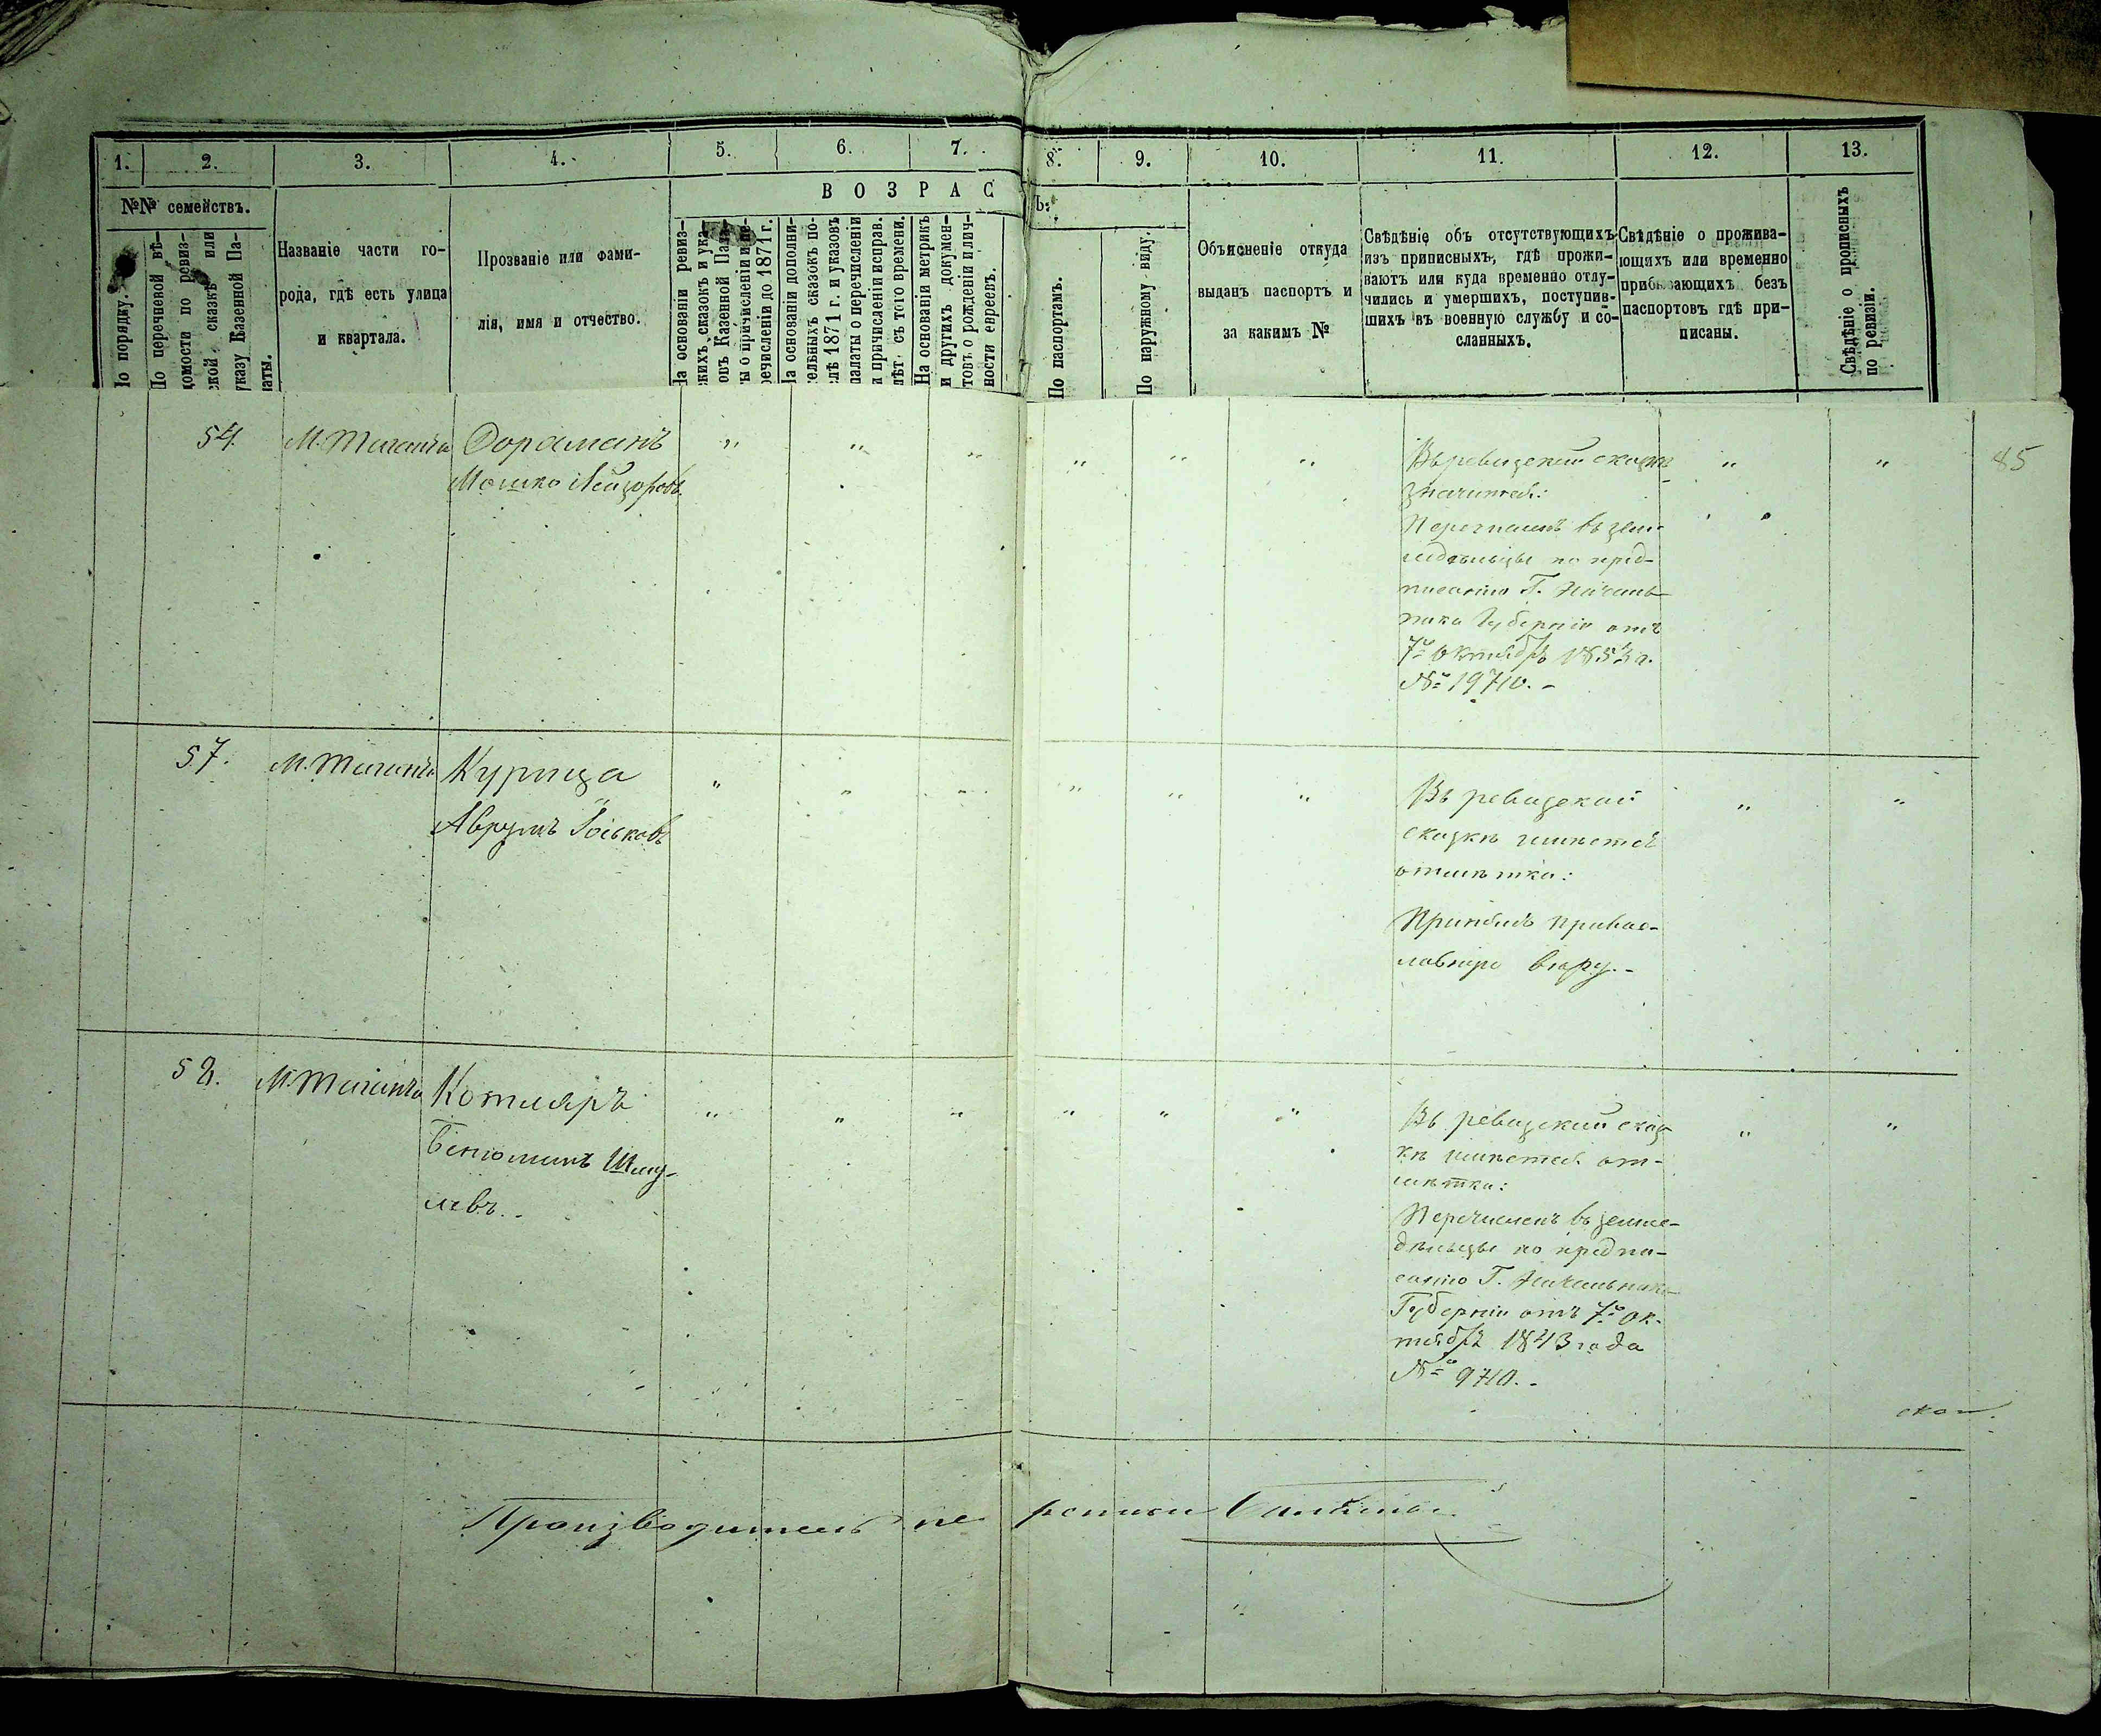 1. 2. 3. 4. 5. 6. 7. 8. 9. 10. 11. 12. 13.
№№ семействъ.
По порядку.
По перечневой вѣ-
домости по ревиз-
ской сказкѣ или
указу Казенной Па-
латы.
Названіе части го-
рода, гдѣ есть улица
и квартала.
Прозваніе или фами-
лія, имя и отчество.
ВОЗРАС
ъ.
На основаніи ревиз-
скихъ сказокъ и ука-
овъ Казенной Пала-
ты о причисленіи и пе-
речисленіи до 1871 г.
На основаніи дополни-
тельныхъ сказокъ по-
слѣ 1871 г. и указовъ
палаты о перечисленіи
и причисленіи исправ.
лѣт. съ того времени.
На основаніи метрикъ
и другихъ докумен-
товъ о рожденіи и лич-
ности евреевъ.
По паспортамъ.
По наружному виду.
Объясненіе откуда
выданъ паспортъ и
за какимъ №
Свѣдѣніе объ отсутствующихъ
изъ приписныхъ, гдѣ прожи-
ваютъ или куда временно отлу-
чились и умершихъ, поступив-
шихъ въ военную службу и со-
сланныхъ.
Свѣдѣніе о прожива-
ющихъ или временно
прибывающихъ безъ
паспортовъ гдѣ при-
писаны.
Свѣдѣніе о прописныхъ
по ревизіи.
85
54. М. Таганча
Мошко Лейзоровъ
" " " " " " " "
Въ ревизской сказкѣ
значится:
Перечисленъ въ земле
дѣльцы по пред-
писанію Г. Началь-
ника Губерніи отъ
7го Октября 1853 г.
№ 19710.-
57. М. Таганча Курица
Аврумъ Іоськовъ
" " " " " " " "
Въ ревизской
сказкѣ имѣется
отмѣтка:
Принялъ право-
славную вѣру.-
М. Таганча Котляръ
Беніоминъ Шму-
левъ.-
" " " " " " " "
Въ ревизской сказ
кѣ имѣется от-
мѣтка:
Перечисленъ въ земле-
дѣльцы по предпи-
санію Г. Начальника
Губерніи отъ 7го Ок-
тября 1843 года
№ 9710.-
Производитель пе реписи